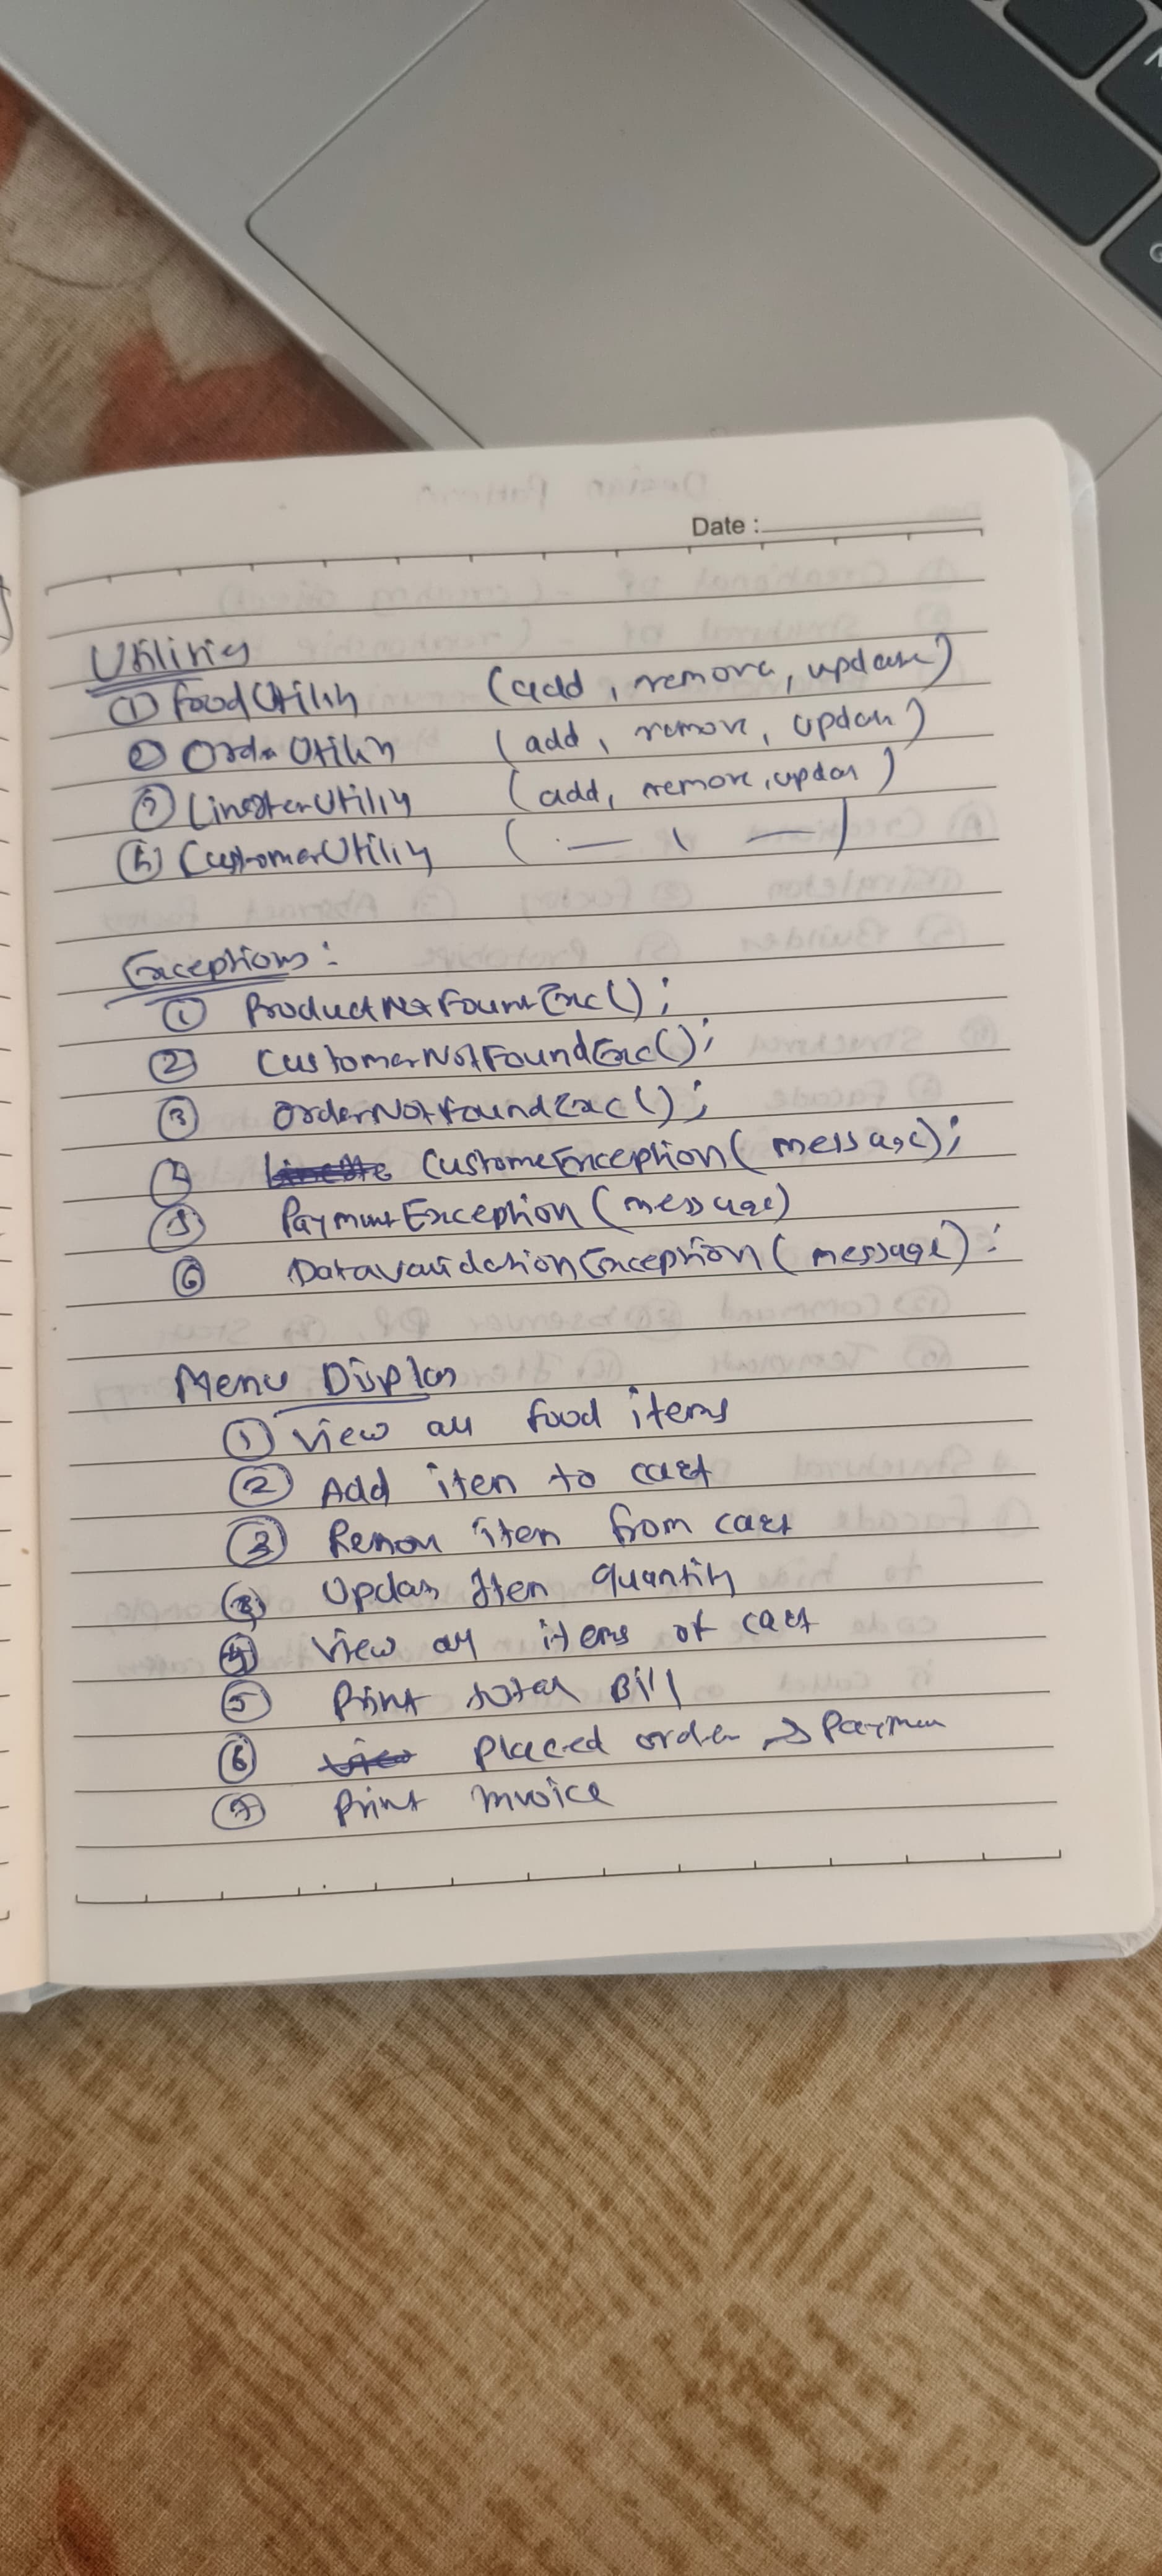 Date :
Utilities
① FoodUtility (add, remove, update)
② OrderUtility (add, remove, update)
③ LineItemUtility (add, remove, update)
④ CustomerUtility ( — , — )
Exceptions :
① ProductNotFoundExc();
② CustomerNotFoundExc();
③ OrderNotFoundExc();
④ CustomeException(message);
⑤ PaymentException (message)
⑥ DataValidationException (message);
Menu Display
① View all food items
② Add item to cart
③ Remove item from cart
③ Update Item quantity
④ View all items of cart
⑤ Print total Bill
⑥ Placed order → Payment
⑦ Print Invoice